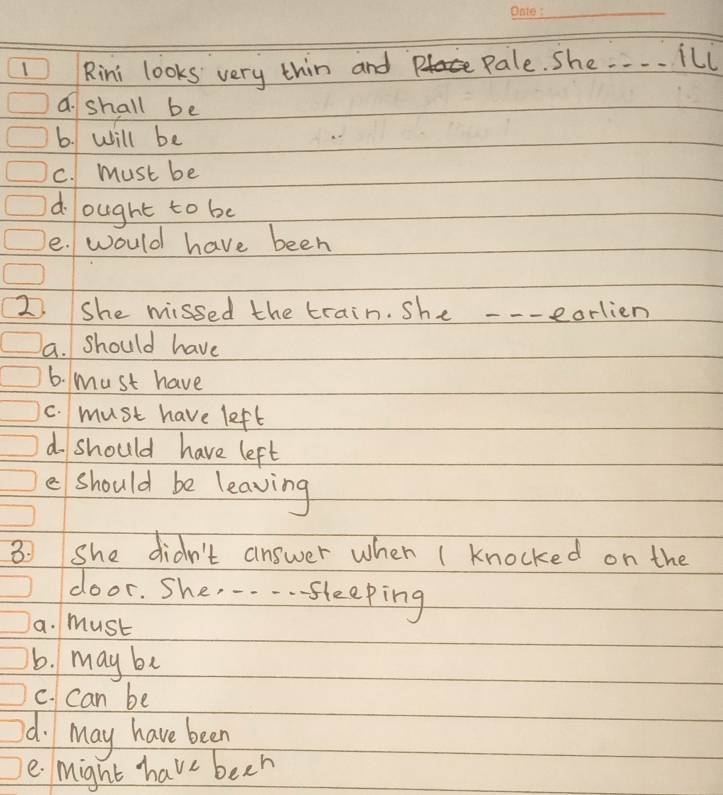 Date :
1 Rini looks very thin and Place Pale. She ..... ill
a. shall be
b. will be
c. must be
d. ought to be
e. would have been
2. She missed the train. She --- earlier
a. should have
b. must have
c. must have left
d. should have left
e should be leaving
3. She didn't answer when I knocked on the
door. She ...... sleeping
a. must
b. may be
c. can be
d. may have been
e. might have been